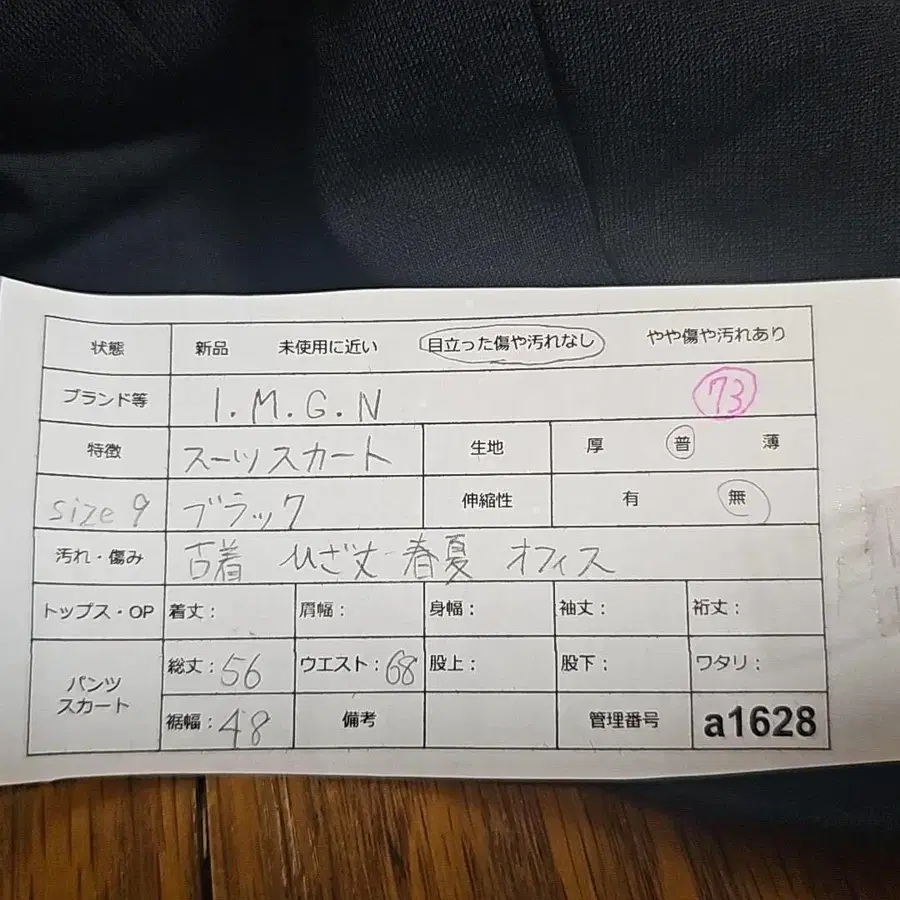 状態 新品 未使用に近い 目立った傷や汚れなし やや傷や汚れあり
ブランド等 I.M.G.N 73
特徴 スーツスカート 生地 厚 普 薄
size 9 ブラック 伸縮性 有 無
汚れ・傷み 古着 ひざ丈 春夏 オフィス
トップス・OP 着丈: 肩幅: 身幅: 袖丈: 裄丈:
パンツ スカート 総丈:56 ウエスト:68 股上: 股下: ワタリ:
裾幅:48 備考 管理番号 a1628